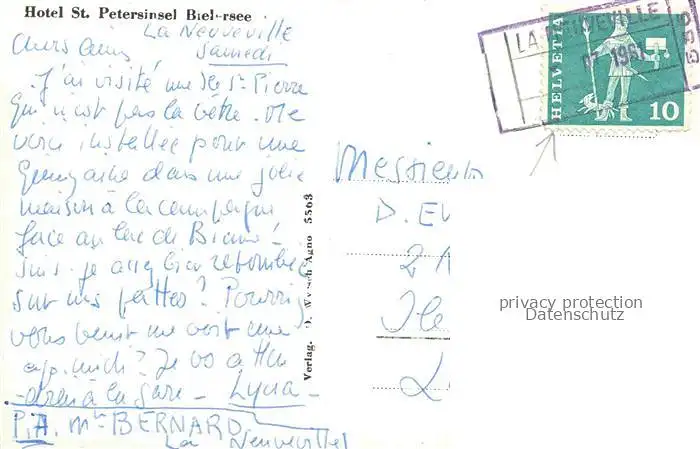 Hotel St. Petersinsel Bielersee
La Neuveville
Samedi
Chers amis
J'ai visité une Ile St. Pierre
qui n'est pas la vôtre. Me
voici installée pour une
quinzaine dans une jolie
maison à la campagne
face au lac de Bienne!
Suis-je assez bien retombée
sur mes pattes? Pourriez
vous venir me voir une
ap. midi? Je vs atten
drai à la gare - Lyna -
P.A. Mr BERNARD
La Neuveville
Verlag. O. Wyrsch Agno 5563
Messieurs
D. EV
21
Ile
L
HELVETIA
10
LA NEUVEVILLE
privacy protection
Datenschutz